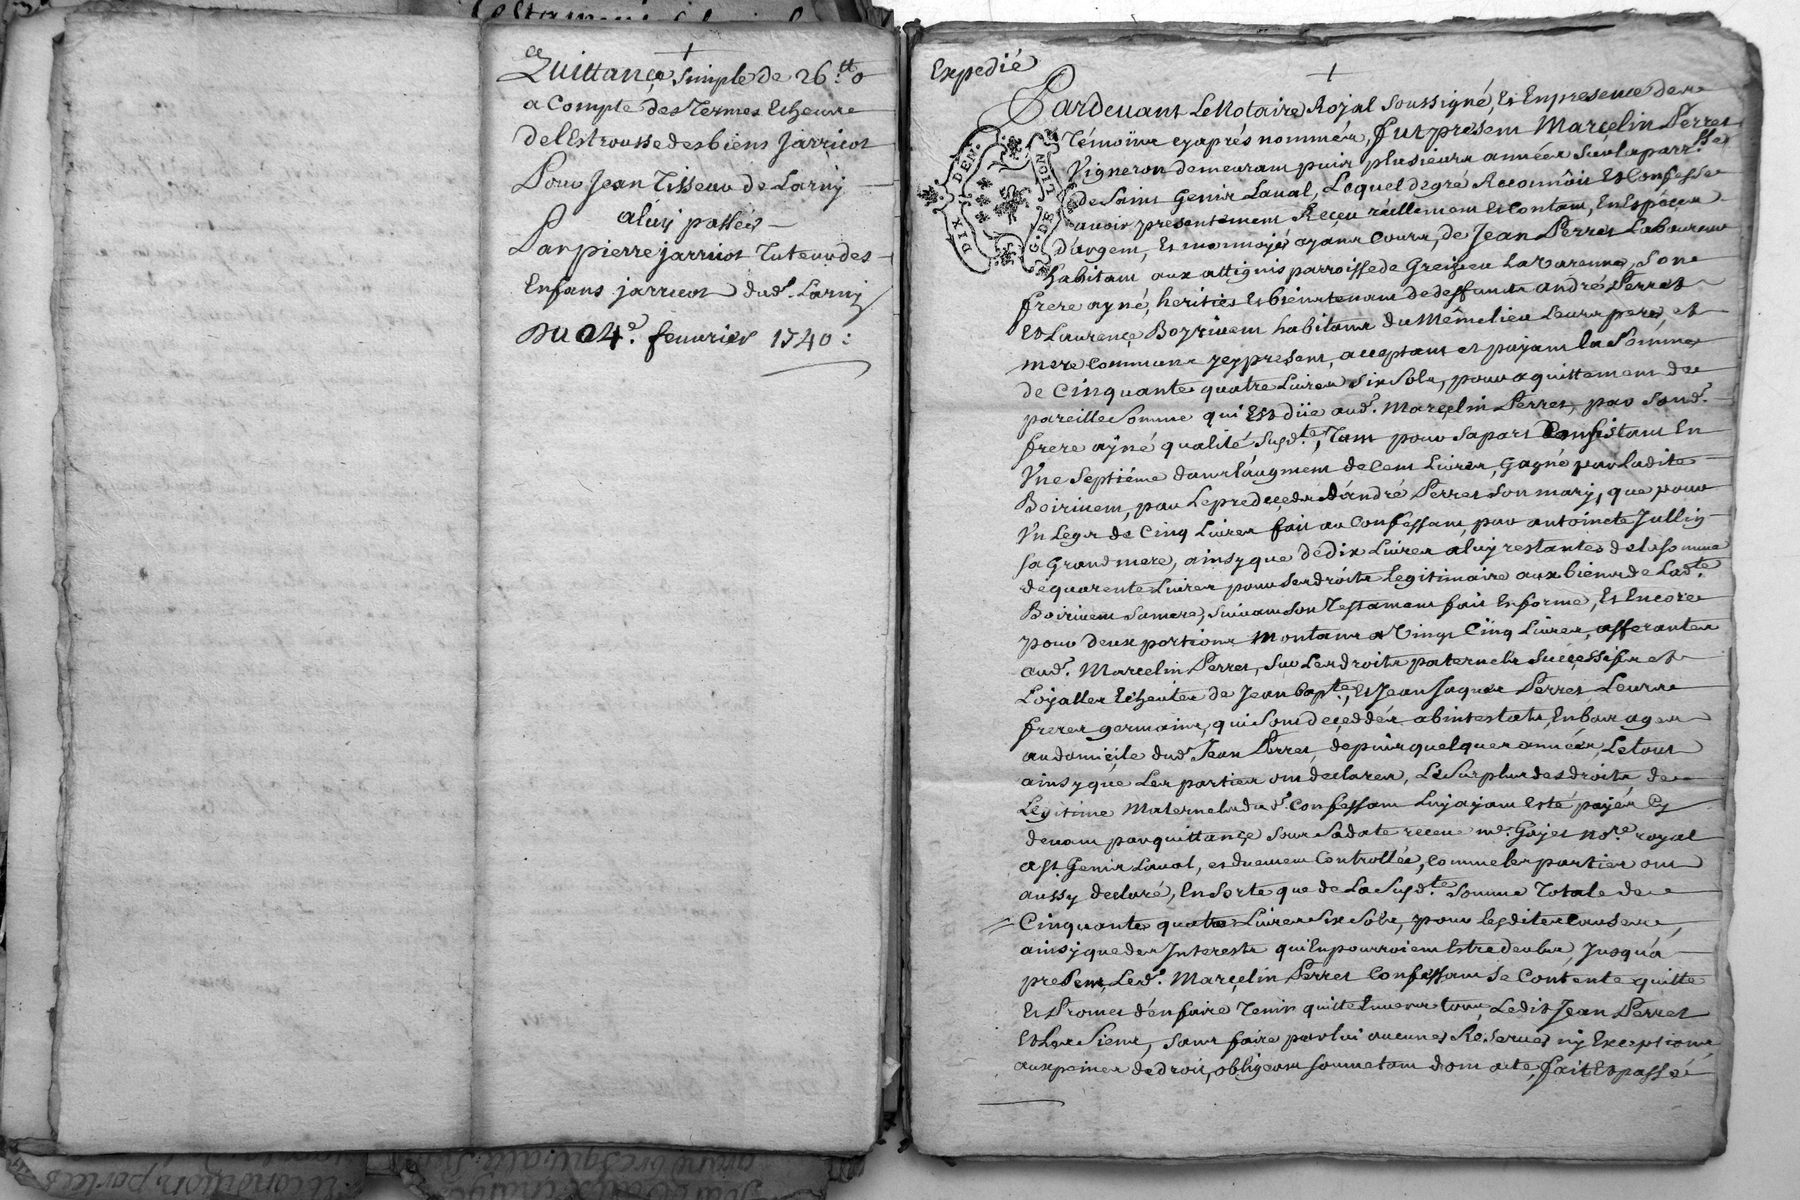 Quittance simple de 26.tt o
a Compte des Termes Echeus
de l'Estrousse des biens jarricot
Pour Jean Tisseur de Larny
a luy passée
Par pierre jarricot Tuteur des
Enfans jarricot dud. Larny
Du 04.e feuurier 1740:
Expedié
Pardeuant Le Notaire Royal soussigné, Et En presence des
Témoins cy aprés nommés, fut présent Marcelin Perret
Vigneron demeurant puis plusieurs années sur la parr.sse
de Saint Genis Laual, Lequel de gré Reconnôit Et Confesse
auoir presentement Reçeu réellement Et Contant, En Espéces
d'argent, Et monnoyes ayans Cours, de Jean Perret Laboureur
habitant aux attignis parroisse de Greizieu La Varenne, son
frere ayné, heritier Et bientenant de deffunts andré Perret
Et Laurence Boyriuent habitans du Même lieu Leurs pere, et
mere communs icy present, acceptant et payant la Somme
de Cinquante quatre Liures six Sols, pour aquittement de
pareille Somme qui Est düe aud. Marcelin Perret, par Sond.
frere ayné qualité Susd.te, Tant pour sa part Consistant En
Vne Septiéme dans l'augment de Cent Liures, Gagné par Ladite
Boiriuent, par Le predeçedes d'andré Perret Son mary, que pour
Vn Legs de Cinq Liures fait au Confessant, par antoinete Jullin
sa Grand mere, ainsy que de dix Liures a luy restantes de la somme
de quarente Liures pour Ses droits legitimaire aux biens de Lad.te
Boiriuent Sa mere, suiuant Son Testament fait En forme, Et Encore
pour deux portions Montans a Vingt Cinq Liures, afferantes
aud. Marcelin Perret, Sur Les droits paternels Successifs et
Loyalles Echeutes de Jean bapt.te, Et Jean Jaques Perret Leurs
freres germains, qui sont deçeddés abintestats, En bas ages
au domicile dud. Jean Perret, depuis quelques années, Le tout
ainsy que Les parties ont declarés, Le Surplus des droits de
Legitime Maternels dud. Confessant Luy ayant Esté payés Cy
deuant par quittançe sous Sa date receue me. Gayet No.re royal
a St. Genis Laual, et duement Controllée, comme les parties ont
aussy declaré, En Sorte que de La Susd.te Somme Totale de
Cinquante quatre Liures Six Sols, pour lesdites causes,
ainsy que des Interests qu'En pourroient Estre deubs, Jusqu'a
present, Led. Marcelin Perret Confessant Se Contente quitte
Et Promet d'en faire Tenir quitte Enuers tous, Ledit Jean Perret
Et Les Siens, sans faire par lui aucunes Réserues ny Exceptions
aux peines de droit, obligeant soumettant dont acte, fait Et passé
DIX DEN.
G. DE